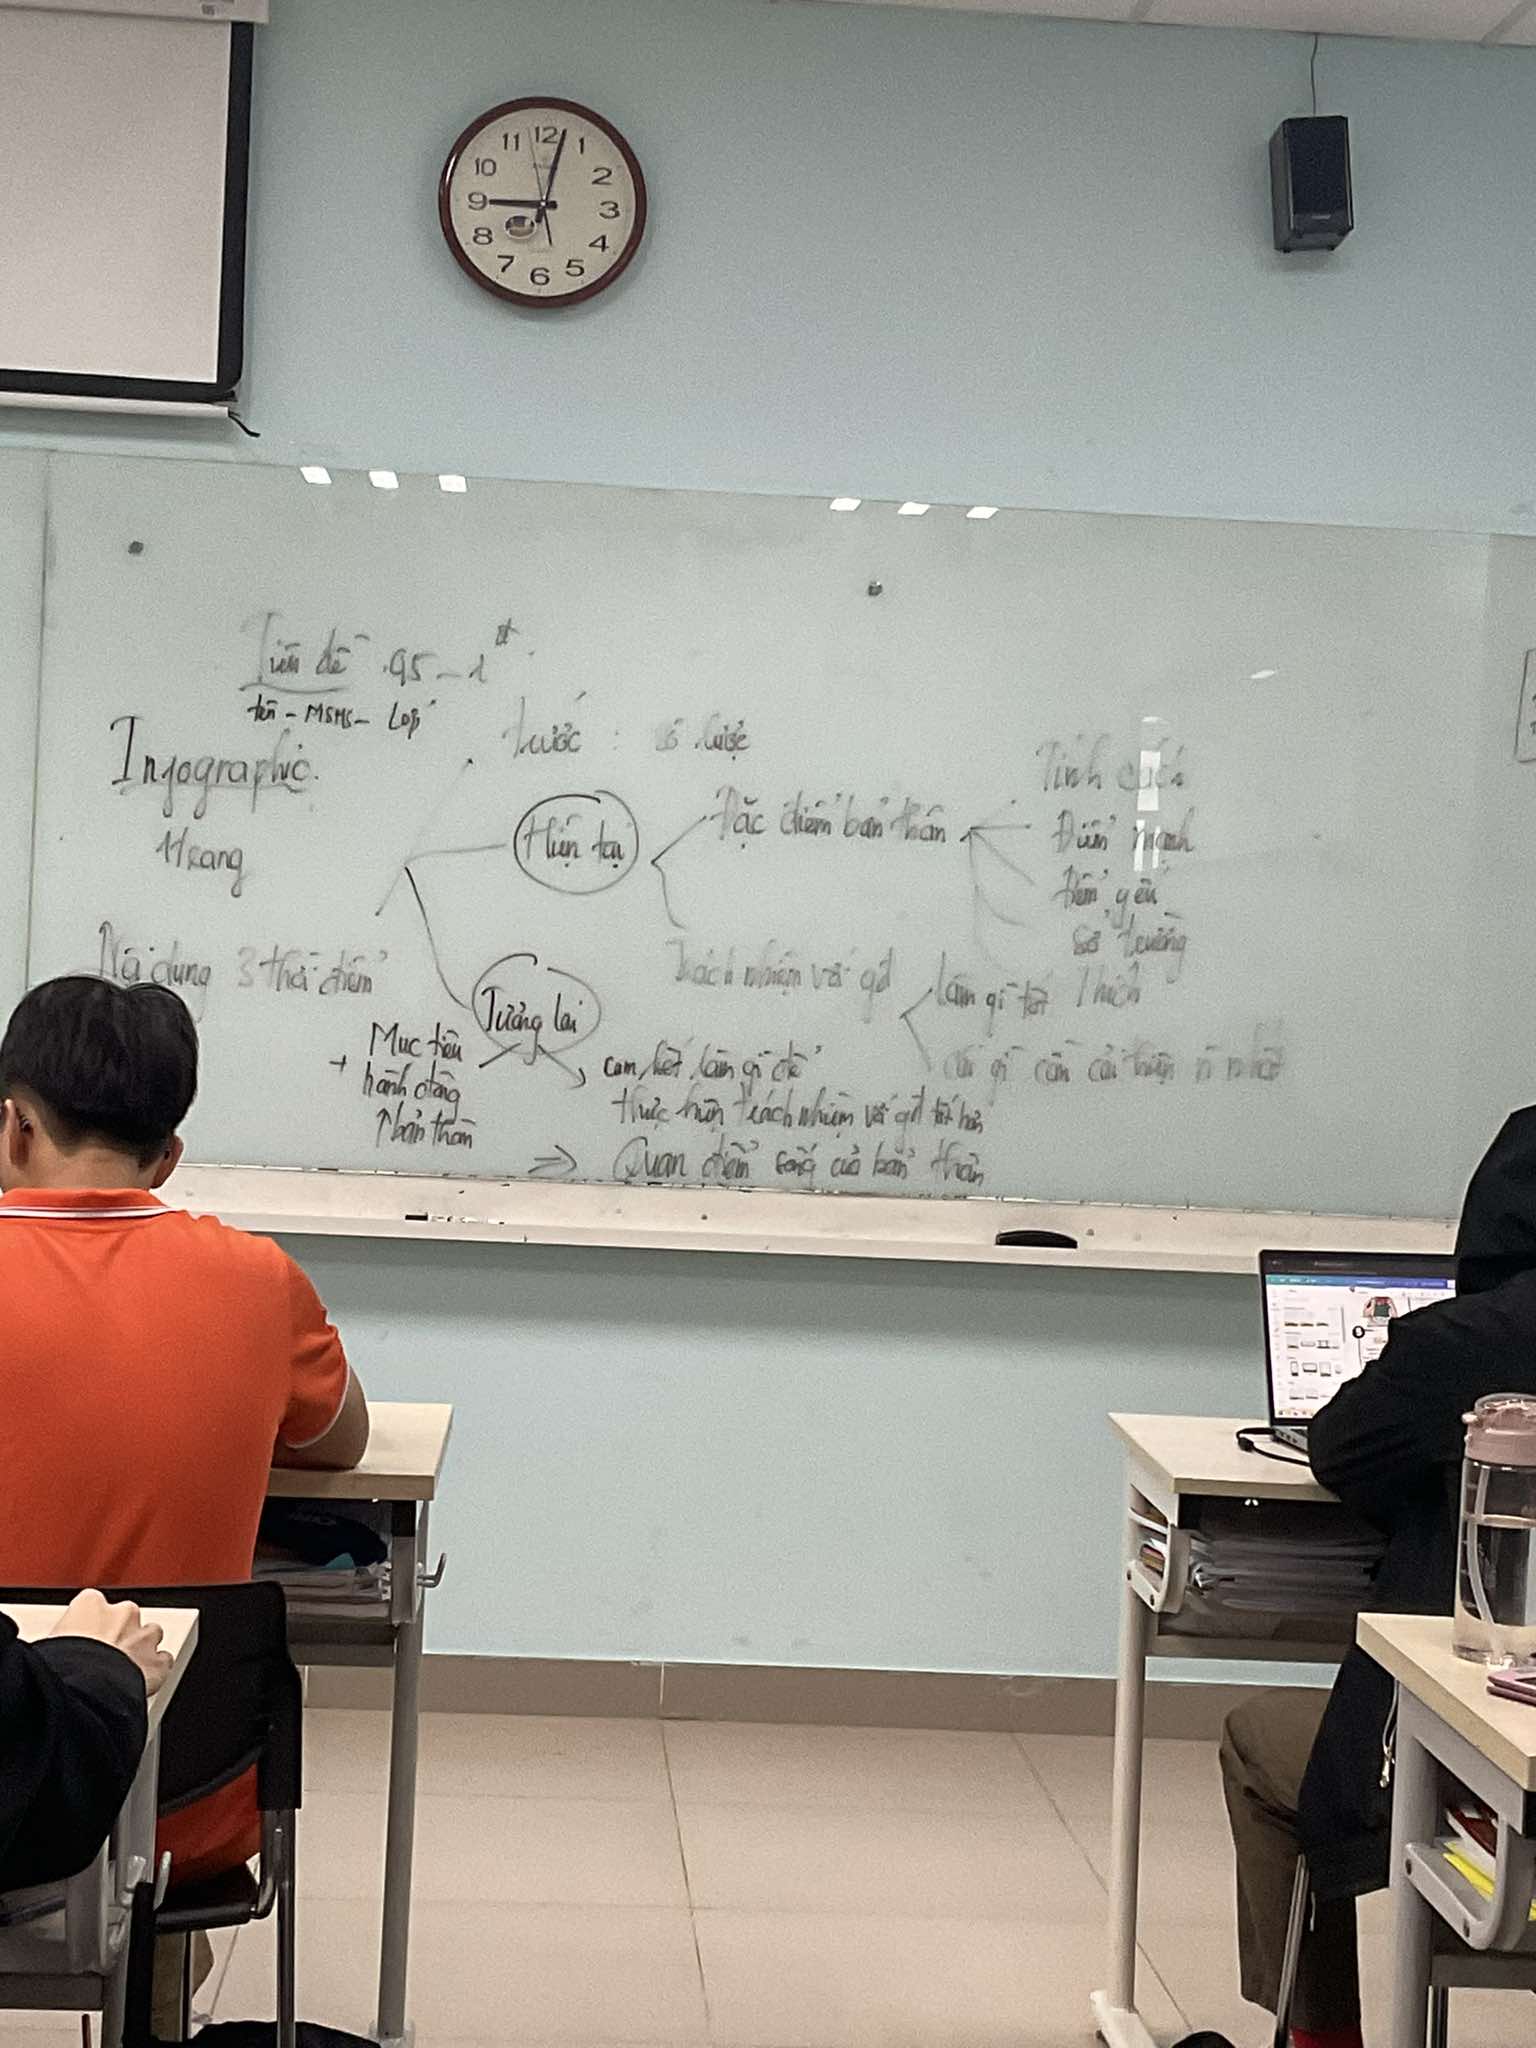 11 12 1
10 2
9 3
8 4
7 6 5
Tiêu đề 0,5 - 1đ
tên - MSHS - Lớp
Infographic.
1 trang
Nội dung 3 thời điểm
trước : sơ lược
Hiện tại
Đặc điểm bản thân
Tính cách
Điểm mạnh
Điểm yếu
Sở trường
Thích
Trách nhiệm với gđ
làm gì tốt
cái gì cần cải thiện
Tương lai
+ Mục tiêu
hành động
↑ bản thân
cam kết làm gì để
thực hiện trách nhiệm với gđ tốt hơn
=> Quan điểm sống của bản thân